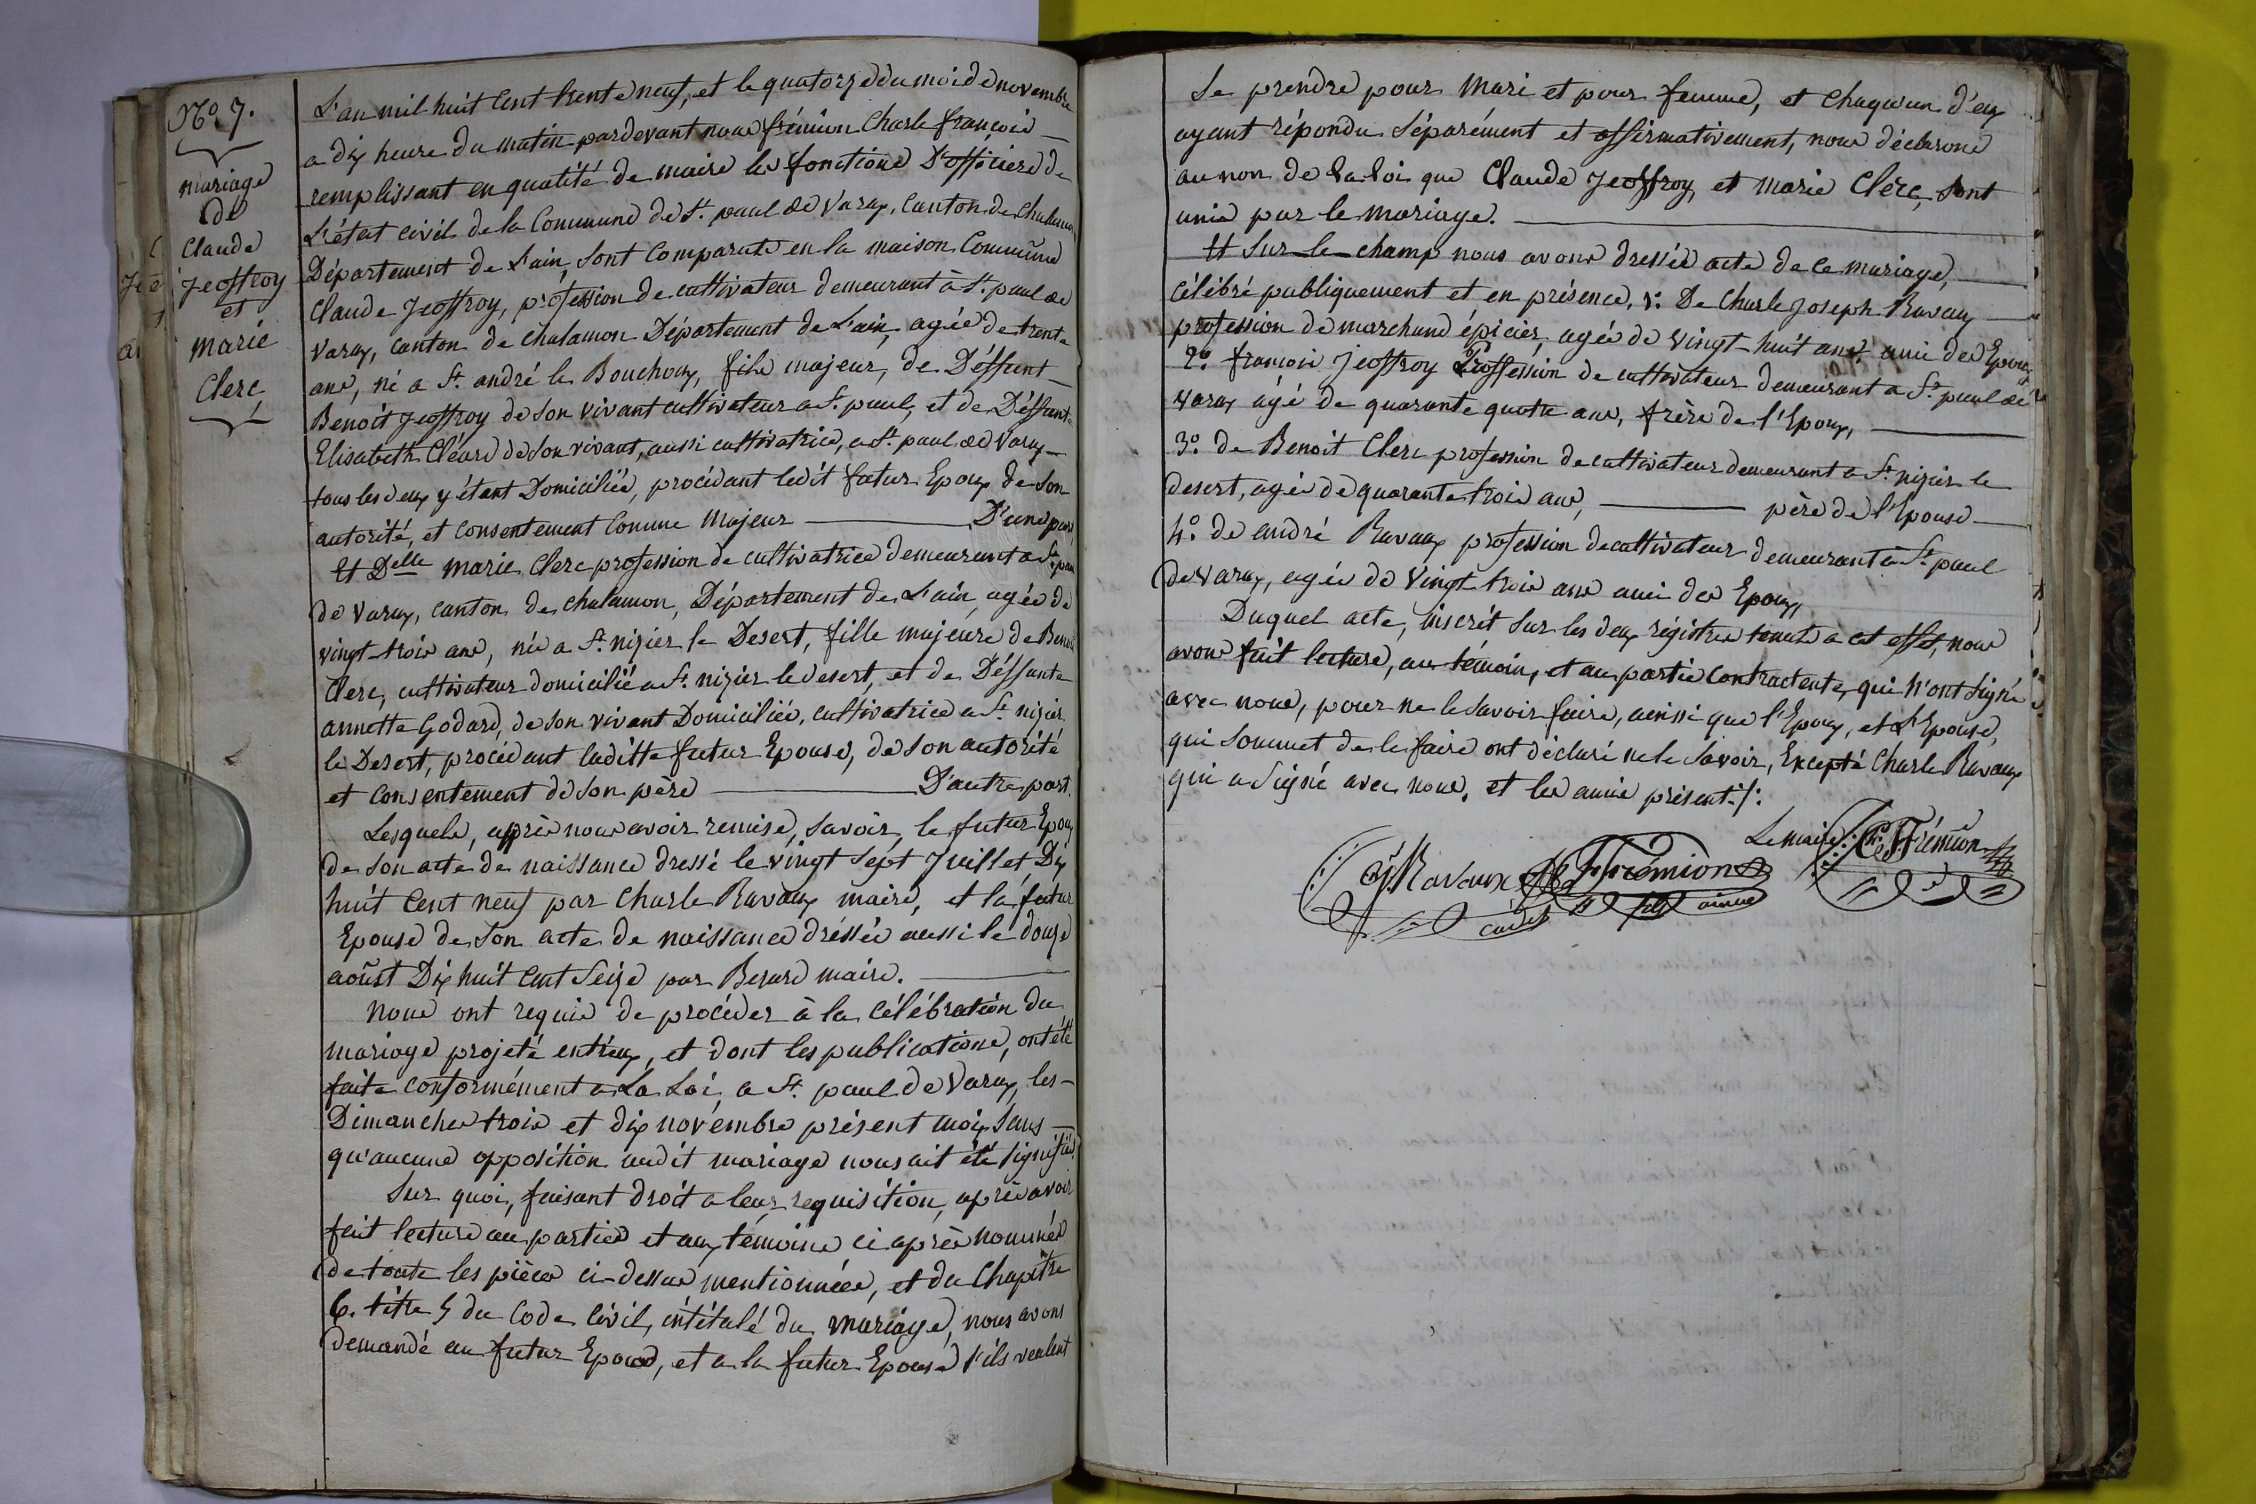 No 7.
mariage
de
Claude
Jeoffroy
et
marie
Clerc
L'an mil huit Cent trente neuf, et le quatorze du moi de novembre
a dix heure du matin pardevant nous frémion Charle françois
remplissant en qualité de maire les fonctions D'officiere de
L'état civil de la Commune de St. paul de Varax, Canton de Chalamon
Département de L'ain, sont Comparuts en la maison Commune
Claude Jeoffroy, profession de cultivateur demeurant à St. paul de
Varax, Canton de chalamon Département de L'ain, agée de trente
ans, né a St. andré le Bouchoux, fils majeur, de Déffunt
Benoit Jeoffroy de son vivant cultivateur a St. paul, et de Déffunte
Elisabeth Cléard de son vivant, aussi cultivatrice, a St. paul de Varax
tous les deux y étant Domiciliée, procédant ledit futur Epoux de Son
autorité, et consentement Comme Majeur D'une part
Et Delle marie Clerc profession de cultivatrice demeurant a St. paul
de Varax, canton de chalamon, Département de L'ain, agée de
vingt-trois ans, née a St. nizier le Desert, fille majeure de Benoit
Clerc, cultivateur domicilié a St. nizier le desert, et de Déffunte
annette Godard, de son vivant Domiciliée, cultivatrice a St. nizier
le Desert, procédant laditte futur Epouse, de son autorité
et consentement de son père D'autre part.
Lesquels, apprès nous avoir remise, savoir, le futur Epoux
de son acte de naissance dressé le vingt sept Juillet, Dix
huit Cent neuf par Charle Ravaux maire, et la futur
Epouse de son acte de naissance dréssée aussi le douze
août Dix huit Cent Seize par Besard maire.
Nous ont requis de procéder à la Célébration du
mariage projeté entr'eux, et dont les publications, ont été
faite conformément a La Loi, a St. paul de Varax, les
Dimanches trois et dix novembre présent mois sans
qu'aucune opposition audit mariage nous ait été signifiée
Sur quoi, faisant droit a leur requisition, après avoir
fait lecture au parties et aux témoins ci après nommées
de toute les pièces ci-dessus mentionnées, et du Chapitre
6. titre 5 du Code Civil, intitulé du mariage, nous avons
demandé au futur Epoux, et a la futur Epouse s'ils veulent
Se prendre pour Mari et pour femme, et chaqu'un d'eux
ayant répondu Séparément et affirmativement, nous déclarons
au nom de la loi que Claude Jeoffroy, et Marie Clerc, sont
unis par le mariage.
Et Sur-le-champ nous avons dressée acte de ce mariage,
Célébré publiquement et en présence, 1º. De Charle Joseph Ravaux
profession de marchand épicier, agée de vingt-huit ans. amie des Epoux
2º. françois Jeoffroy Proffession de cultivateur demeurant a St. paul de
Varax agé de quarante quatre ans, frère de l'Epoux,
3º. de Benoit Clerc profession de cultivateur demeurant a St. nizier le
desert, agée de quarante trois ans, père de l'Epouse
4º. de andré Ravaux profession de cultivateur demeurant à St. paul
de Varax, agée de vingt trois ans ami des Epoux,
Duquel acte, inscrit sur les deux régistres tenuts a cet effet, nous
avons fait lecture, au témoin, et au partie Contractente, qui n'ont signé
avec nous, pour ne le savoir faire, ainssi que l'Epoux, et L'Epouse,
qui sommet de le faire ont déclaré ne le savoir, Excepté Charle Ravaux
qui a Signé avec nous. et les amis présent./.
Le maire: Ch. F. Frémion
Cj. Ravaux cadet
Frémion fils ainné